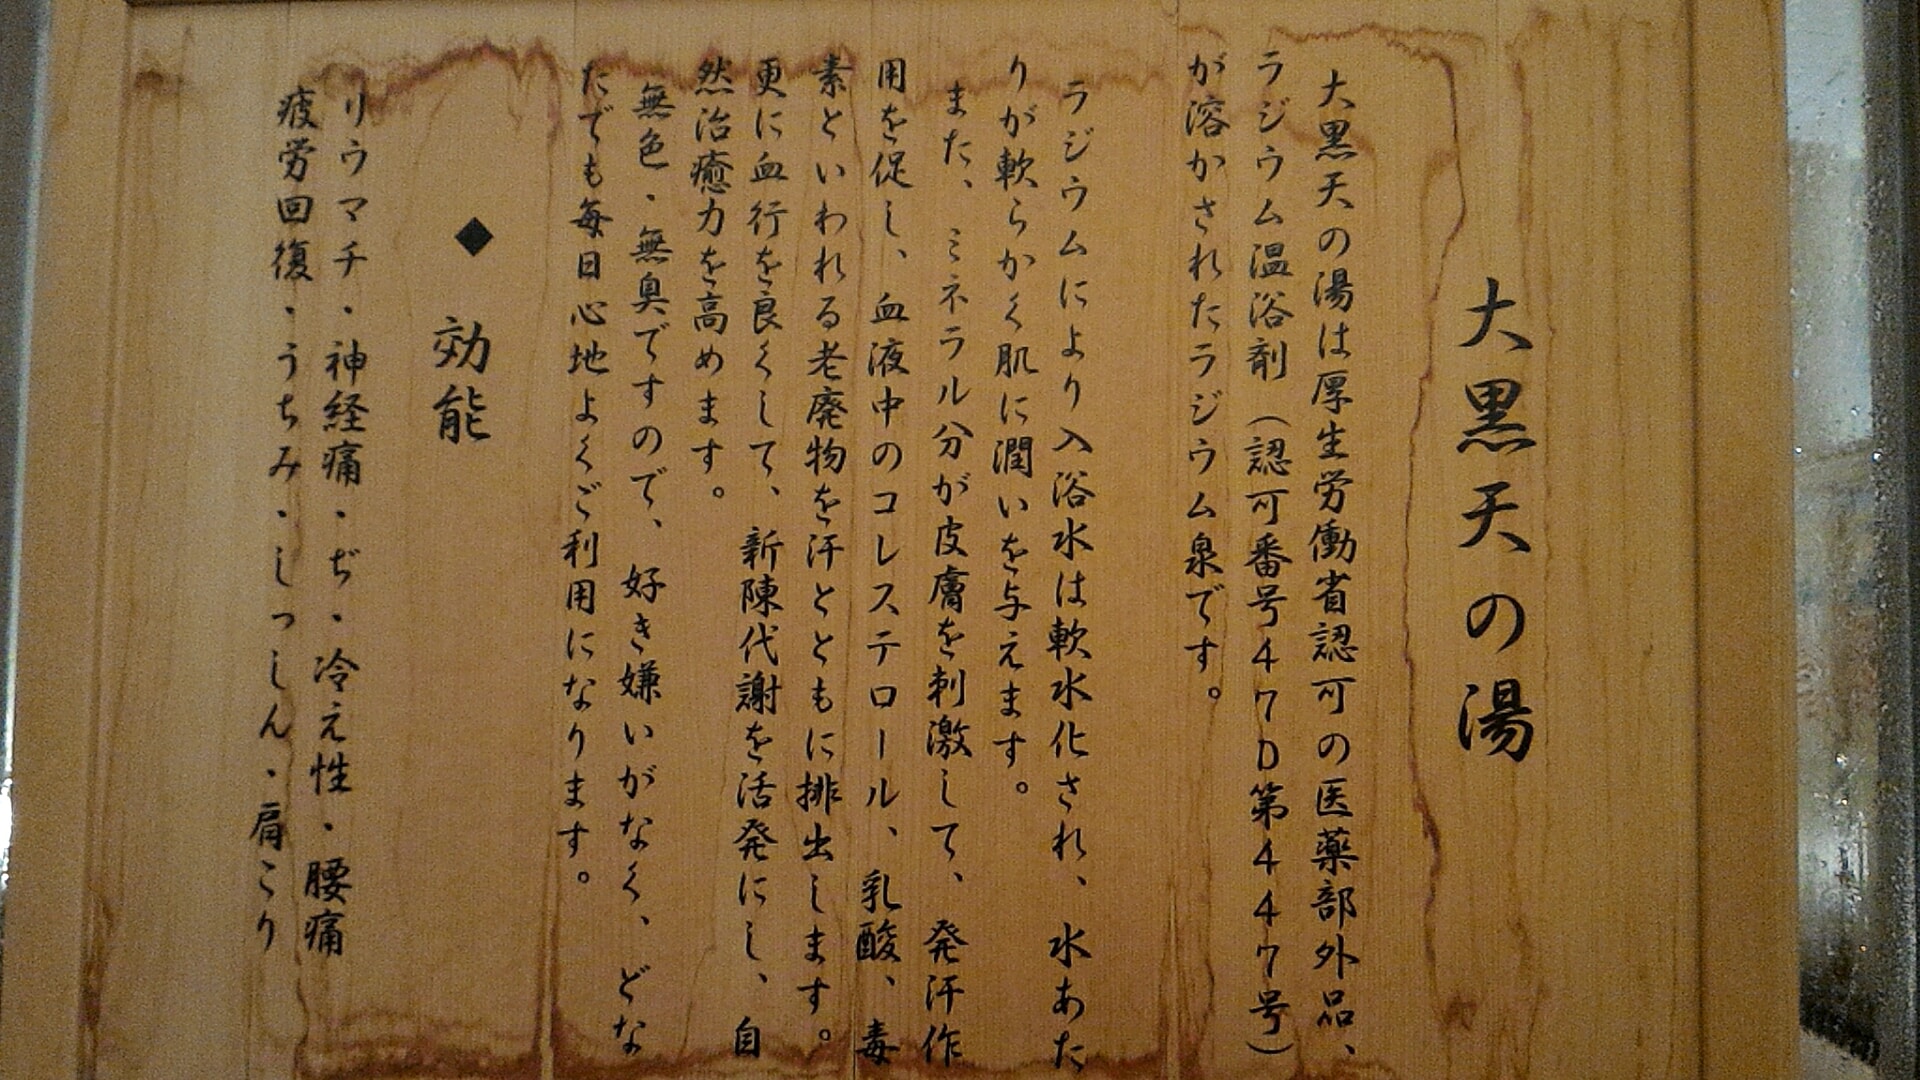 大黒天の湯
大黒天の湯は厚生労働省認可の医薬部外品、
ラジウム温浴剤（認可番号４７Ｄ第４４７号）
が溶かされたラジウム泉です。
ラジウムにより入浴水は軟水化され、水あた
りが軟らかく肌に潤いを与えます。
また、ミネラル分が皮膚を刺激して、発汗作
用を促し、血液中のコレステロール、乳酸、毒
素といわれる老廃物を汗とともに排出します。
更に血行を良くして、新陳代謝を活発にし、自
然治癒力を高めます。
無色・無臭ですので、好き嫌いがなく、どな
たでも毎日心地よくご利用になります。
◆ 効能
リウマチ・神経痛・ぢ・冷え性・腰痛
疲労回復・うちみ・しっしん・肩こり